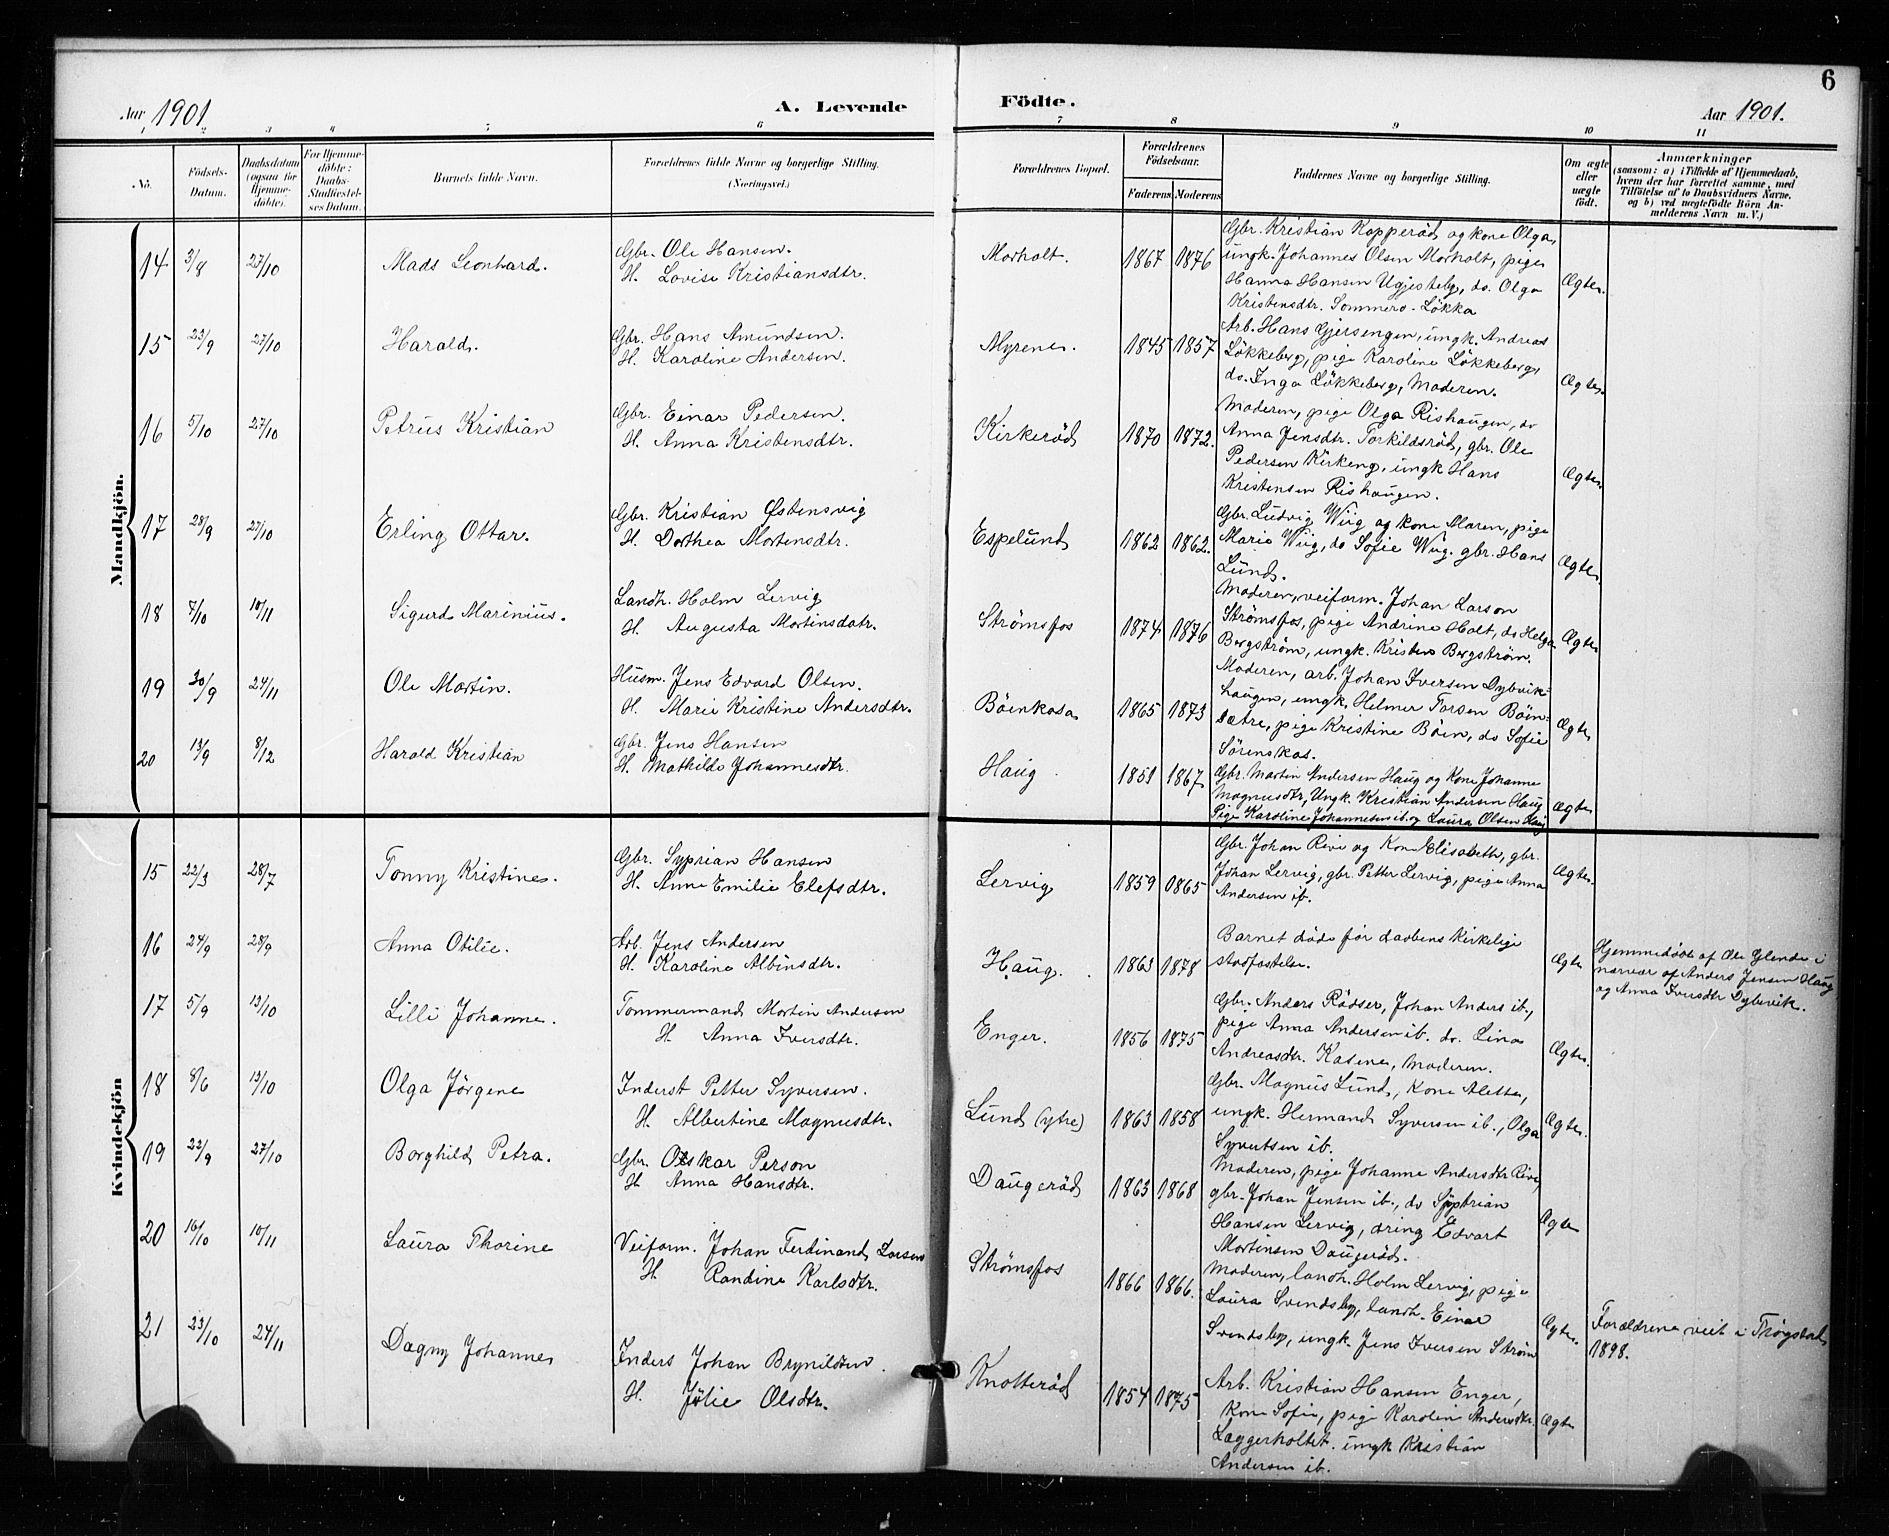 Aar 1901.
A. Levende
Födte.
Aar 1901.
6
1 2 3 4 5 6 7 8 9 10 11
No.
Födsels-
Datum.
Daabsdatum
(ogsaa for
Hjemme-
döbte).
For Hjemme-
döbte:
Daabs-
Stadfæstel-
ses Datum.
Barnets fulde Navn.
Forældrenes fulde Navne og borgerlige Stilling.
(Næringsvei.)
Forældrenes Bopæl.
Forældrenes
Födselsaar.
Faderens
Moderens
Faddernes Navne og borgerlige Stilling.
Om ægte
eller
uægte
født.
Anmærkninger
(saasom: a) i Tilfælde af Hjemmedaab,
hvem der har forrettet samme, med
Tilføielse af to Daabsvidners Navne,
og b) ved uægtefødte Börn An-
melderens Navn m. V.)
Mandkjön.
14 3/8 27/10 Mads Leonhard.
Gbr. Ole Hansen.
H. Lovise Kristiansdtr.
Morholt. 1867 1876
Gbr. Kristian Kopperöd og kone Olga,
ungk. Johannes Olsen Morholt, pige
Hanna Hansen Ugjesteby, do. Olga
Kristensdtr. Sommero-Lökka
Ægte.
15 23/9 27/10 Harald.
Gbr. Hans Amundsen.
H. Karoline Andersen.
Myrene. 1845 1857
Arb. Hans Gjersengen, ungk. Andreas
Lökkeberg, pige Karoline Lökkeberg,
do. Inga Lökkeberg, Moderen.
Ægte.
16 5/10 27/10 Petrus Kristian
Gbr. Einar Pedersen.
H. Anna Kristensdtr.
Kirkeröd 1870 1872.
Moderen, pige Olga Rishaugen, do
Anna Jensdtr. Torkildsröd, gbr. Ole
Pedersen Kirkeng, ungk Hans
Kristensen Rishaugen.
Ægte.
17 28/9 27/10 Erling Ottar.
Gbr. Kristian Østensvig
H. Dorthea Mortensdtr.
Espelund 1862 1862.
Gbr. Ludvig Wiig og kone Maren, pige
Marie Wiig, do Sofie Wiig. gbr. Hans
Lund.
Ægte.
18 7/10 10/11 Sigurd Marinius.
Landh. Holm Lervig
H. Augusta Mortinsdatr.
Strømsfos 1874 1876
Moderen, veiform. Johan Larson
Strømsfos, pige Andrine Holt, do Helga
Bergström, ungk. Kristen Bergström.
Ægte
19 30/9 24/11 Ole Martin.
Husm. Jens Edvard Olsen.
H. Marie Kristine Andersdtr.
Böenkasa 1865 1873
Moderen, arb. Johan Iversen Dybvik-
haugen, ungk. Helmer Torsen Böen-
sætre, pige Kristine Böen, do Sofie
Sörenskas.
Ægte
20 13/9 8/12 Harald Kristian
Gbr. Jens Hansen
H. Mathilde Johannesdtr.
Haug. 1851 1867
Gbr. Martin Andersen Haug og Kone Johanne
Magnusdtr, Ungk. Kristian Andersen Haug
Pige Karoline Johannesen ib. og Laura Olsen Haug
Ægte
Kvindekjön
15 22/3 28/7 Tonny Kristine.
Gbr. Syprian Hansen
H. Anne Emilie Elefsdtr.
Lervig 1859 1865
Gbr. Johan Rive og Kone Elisabeth, gbr.
Johan Lervig, gbr. Petter Lervig, pige Anna
Andersen ib.
Ægte.
16 24/9 28/9 Anna Otilie.
Arb. Jens Andersen
H. Karoline Albinsdtr.
Haug. 1863 1878
Barnet døde før daabens kirkelige
stadfæstelse.
Ægte
Hjemmedöbt af Ole Glende i
nærvær af Anders Jensen Haug
og Anna Iversdtr Dybevik.
17 5/9 13/10 Lilli Johanne.
Tømmermand Mortin Andersen
H. Anna Iversdtr.
Enger. 1856 1875
Gbr. Anders Rødser, Johan Anders ib.,
pige Anna Andersen ib. do. Lina
Andreasdtr. Kasene, Moderen.
Ægte.
18 8/6 13/10 Olga Jörgene
Inderst Petter Syversen.
H. Albertine Magnusdtr.
Lund (ytre) 1863 1858
Gbr. Magnus Lund, Kone Alette,
ungk. Herman Syversen ib., Olga
Syvertsen ib.
Ægte.
19 22/9 27/10 Borghild Petra.
Gbr. Oskar Person
H. Anna Hansdtr.
Daugeröd 1863 1868
Moderen, pige Johanne Andersdtr Rive,
gbr. Johan Jensen ib., do Syprian
Hansen Lervig, dreng Edvart
Mortinsen Daugeröd.
Ægte
20 16/10 10/11 Laura Thorine
Veiform. Johan Ferdinand Larsen
H. Randine Karlsdtr.
Strømsfos 1866 1866.
Moderen, landh. Holm Lervig, pige
Laura Svendsby, landh. Einar
Svendsby, ungk. Jens Iversen Strøm
Ægte.
Forældrene viet i Trøgstad
1898.
21 23/10 24/11 Dagny Johanne
Inders Johan Brynildsen.
H. Jülie Olsdtr.
Knotteröd 1854 1875
Arb. Kristian Hansen Enger,
Kone Sofie, pige Karoline Andersdtr.
Læggerholtet. ungk Kristian
Andersen ib.
Ægte